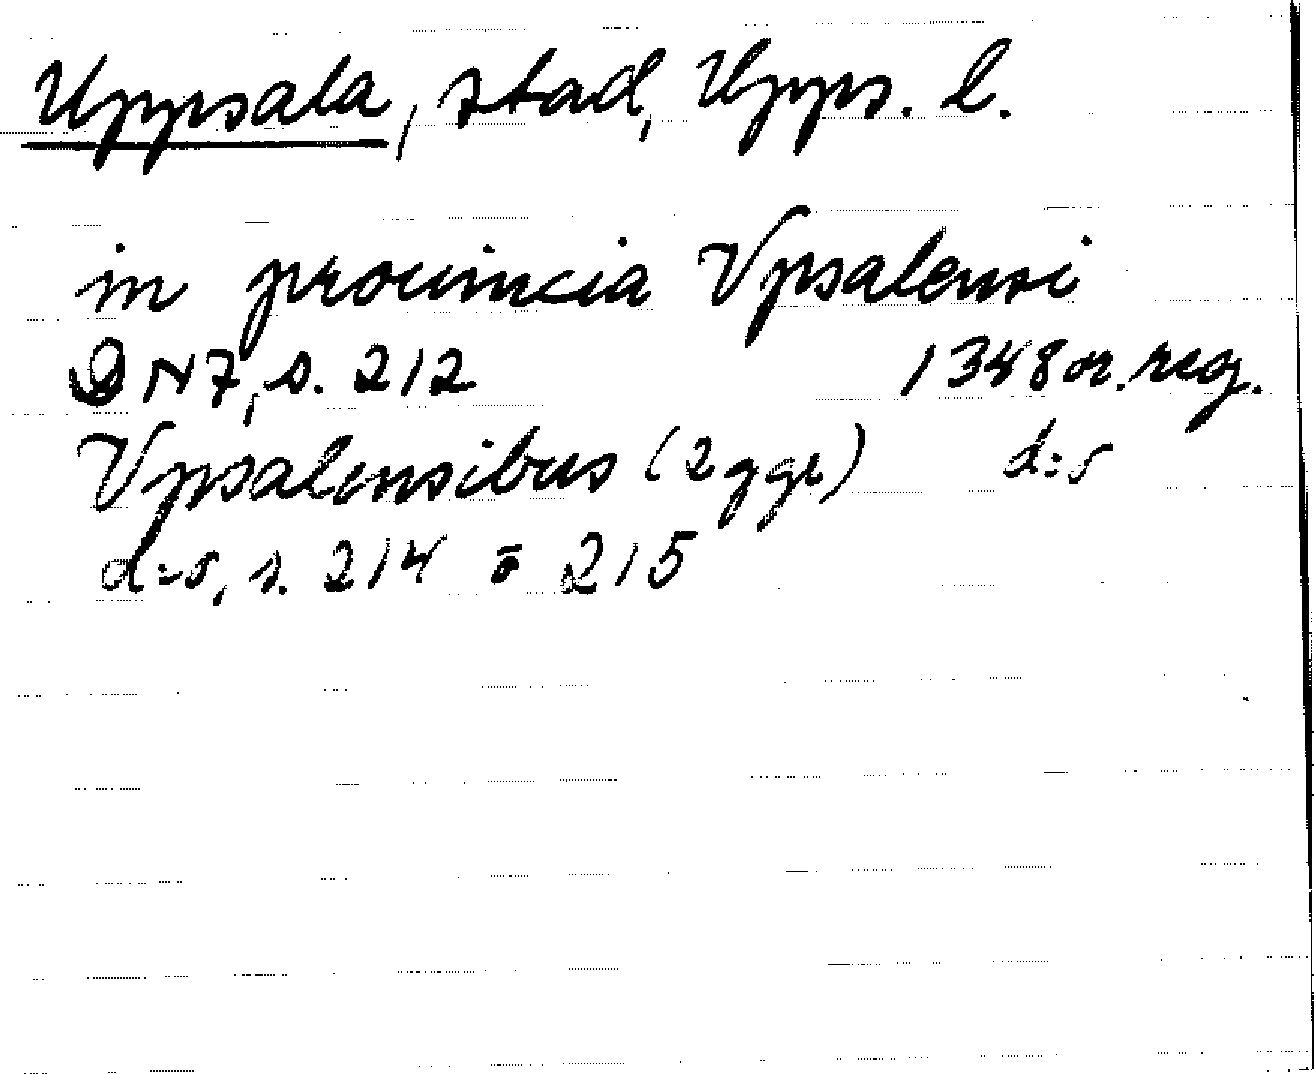 Uppsala, stad, Upps. l.
in prouincia Vpsalensi
DN7, s. 212 1348 or. reg.
Vpsalensibus (2 ggr) d:o
d:o, s. 214 o 215